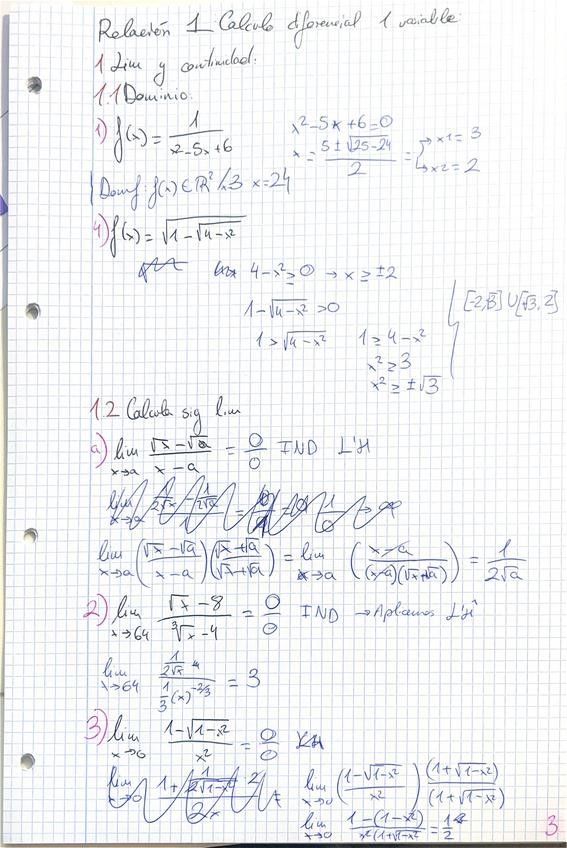 Relación 1 Calculo diferencial 1 variable:
1 Lim y continuidad:
1.1 Dominio:
1) f(x) = 1/(x²-5x+6)
x²-5x+6=0
x = (5±√(25-24))/2 = → x1=3 → x2=2
Domf: f(x) ∈ ℝ² / x=3 x=24
4) f(x) = √(1-√(4-x²))
4-x² ≥ 0 → x ≥ ±2
1-√(4-x²) >0
1 > √(4-x²)
1 ≥ 4-x²
x² ≥ 3
x² ≥ ±√3
[-2,√3] U [√3, 2]
1.2 Calcula sig lim
a) lim x→a (√x-√a)/(x-a) = 0/0 IND L'H
lim x→a ((√x-√a)/(x-a)) ((√x+√a)/(√x+√a)) = lim x→a ((x-a)/((x-a)(√x+√a))) = 1/(2√a)
2) lim x→64 (√x-8)/(∛x-4) = 0/0 IND → Aplicamos L'H
lim x→64 (1/(2√x))/(1/3 (x)^(-2/3)) = 3
3) lim x→0 (1-√(1-x²))/x² = 0/0 L'H
lim x→0 ((1-√(1-x²))/x²) ((1+√(1-x²))/(1+√(1-x²)))
lim x→0 (1-(1-x²))/(x²(1+√(1-x²))) = 1/2
3